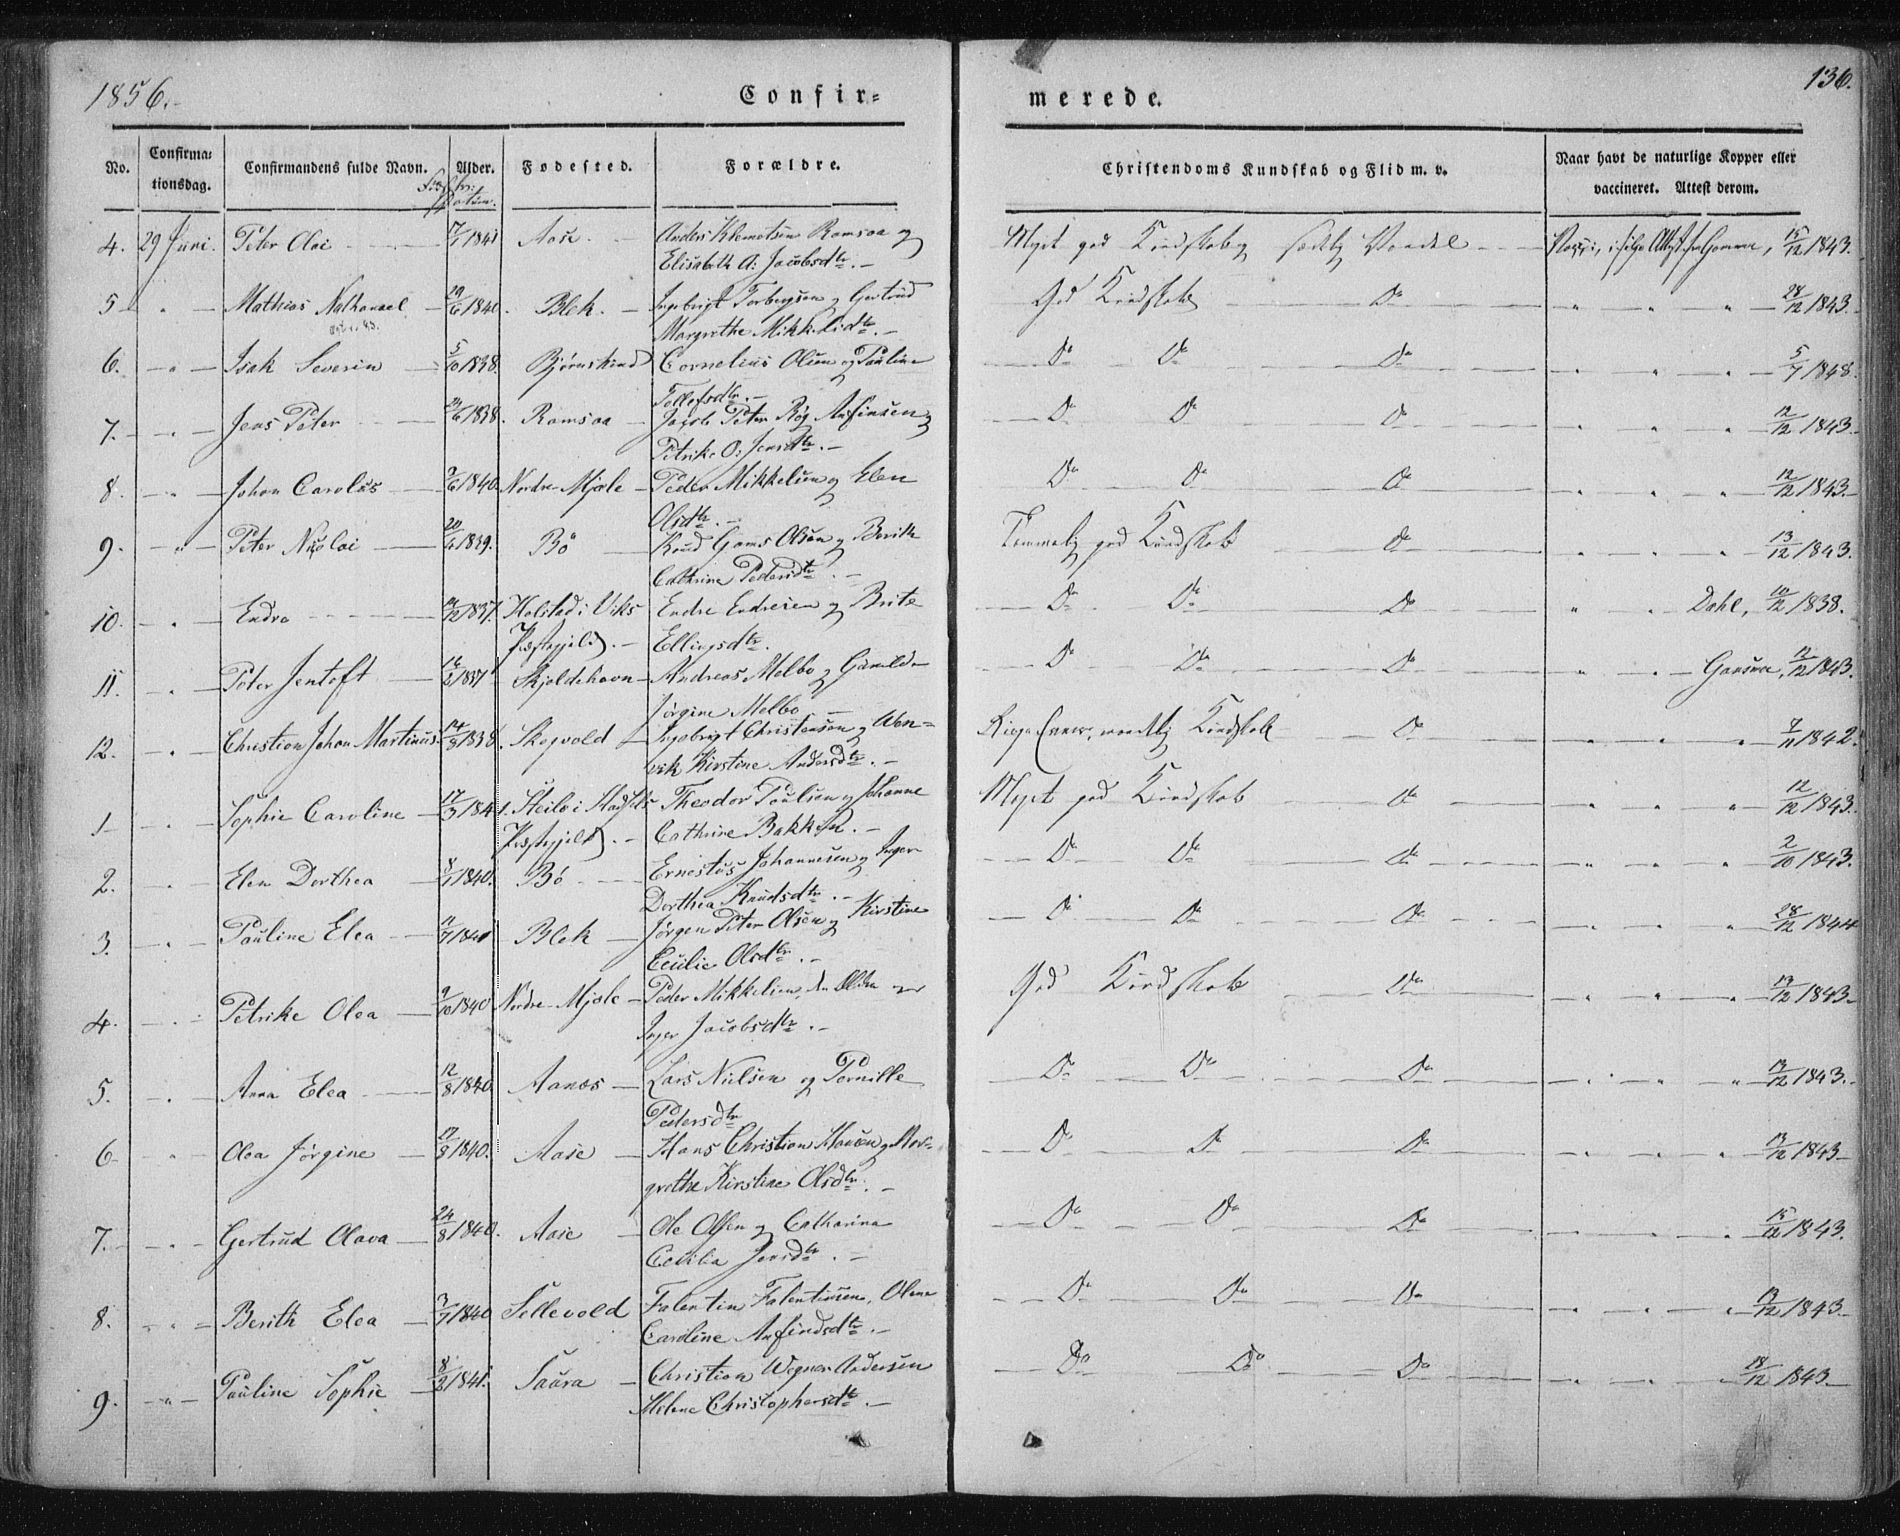 1856.
Confir=
merede.
136.
No.
Confirma=
tionsdag.
Confirmandens fulde Navn.
Alder.
Fødested.
Forældre.
Christendoms Kundskab og Flid m. v.
Naar havt de naturlige Kopper eller
vaccineret. Attest derom.
4. 29 Juni. Peter Oloi 17/1 1841 Aase. Anders Klemetsen Ramsaa og
Elisabeth A: Jacobsdtr.
Meget god Kundskab og sædelig Vandel 15/12 1843.
5 " Mathias Nathanael 29/6 1840. Blek. Ingebrigt Torbergsen og Gertrud
Margrethe Mikkelsdtr.
God Kundskab Do " " " 28/12 1843.
6. " Isak Severin 5/10 1838. Bjørnskind Cornelius Olsen og Pauline
Tollefsdtr.
Do Do Do " " " 5/7 1848.
7. " Jens Peter 24/6 1838. Ramsaa Jacob Peter Røg Anfinsen og
Petrike O: Jensdtr.
Do Do Do " " " 12/12 1843.
8 " Johan Carolus 9/6 1840. Nordre Mjele Peder Mikkelsen og Elen
Olsdtr.
Do Do Do " " " 12/12 1843.
9. " Peter Nicolai 20/4 1839. Bø Knud Gams Olsen og Berith
Cathrine Pedersdtr.
Temmelig god Kundskab Do " " " 13/12 1843.
10. " Endre 1837. Holstad i Viks Endre Endresen og Brite
Præstegjeld. Ellingsdtr.
Do Do Do " " Dahl, 10/12 1838.
11. " Peter Jentoft 16/2 1837 Skjoldehavn Andreas Melbo og Gunelda
Jørgine Melbo
Do Do Do " " 12/12 1843.
12. " Christian Johan Martinus 14/8 1838. Skogvold Ingebrigt Christensen og Wen=
vik Kirstine Andersdtr.
Kundskab Do " " " 7/11 1842.
1 " Sophie Caroline 17/3 1841. Steilo i Hadsels Theodor Poulsen og Johanne
Præstegjeld. Cathrine Bakken.
Meget god Kundskab Do " " " 12/12 1843.
2. " Elen Dorthea 8/1 1840. Bø Ernestus Johannesen og Inger
Dorthea Knudsdtr.
Do Do Do " " " 2/10 1843.
3. " Pauline Elea 11/7 1841 Blek Jørgen Peter Olsen og Kirstine
Cecilie Olsdtr.
Do Do Do " " " 28/12 1844
4. " Petrike Olea 9/10 1840 Nordre Mjele Peder Mikkelsen, den Eldre og
Inger Jacobsdtr.
God Kundskab Do " " " 13/12 1843
5. " Anna Elea 12/8 1840 Aanes Lars Nielsen og Pernille
Pedersdtr
Do Do Do " " " 13/12 1843.
6 " Olea Jørgine 17/8 1840. Aase Hans Christian Hansen og Mar=
grethe Kirstine Olsdtr.
Do Do Do " " " 13/12 1843
7. " Gertrud Olava 24/8 1840. Aase Ole Olsen og Catharina
Cecilia Jensdtr.
Do Do Do " " " 15/12 1843.
8. " Berith Elea 3/7 1840 Sellevold Falentin Falentinsen, Olena
Caroline Anfindsdtr.
Do Do Do " " " 13/12 1843
9. " Pauline Sophie 8/2 1841. Saura Christian Wegner Andersen
Helene Christophersdtr.
Do Do Do " " " 18/12 1843